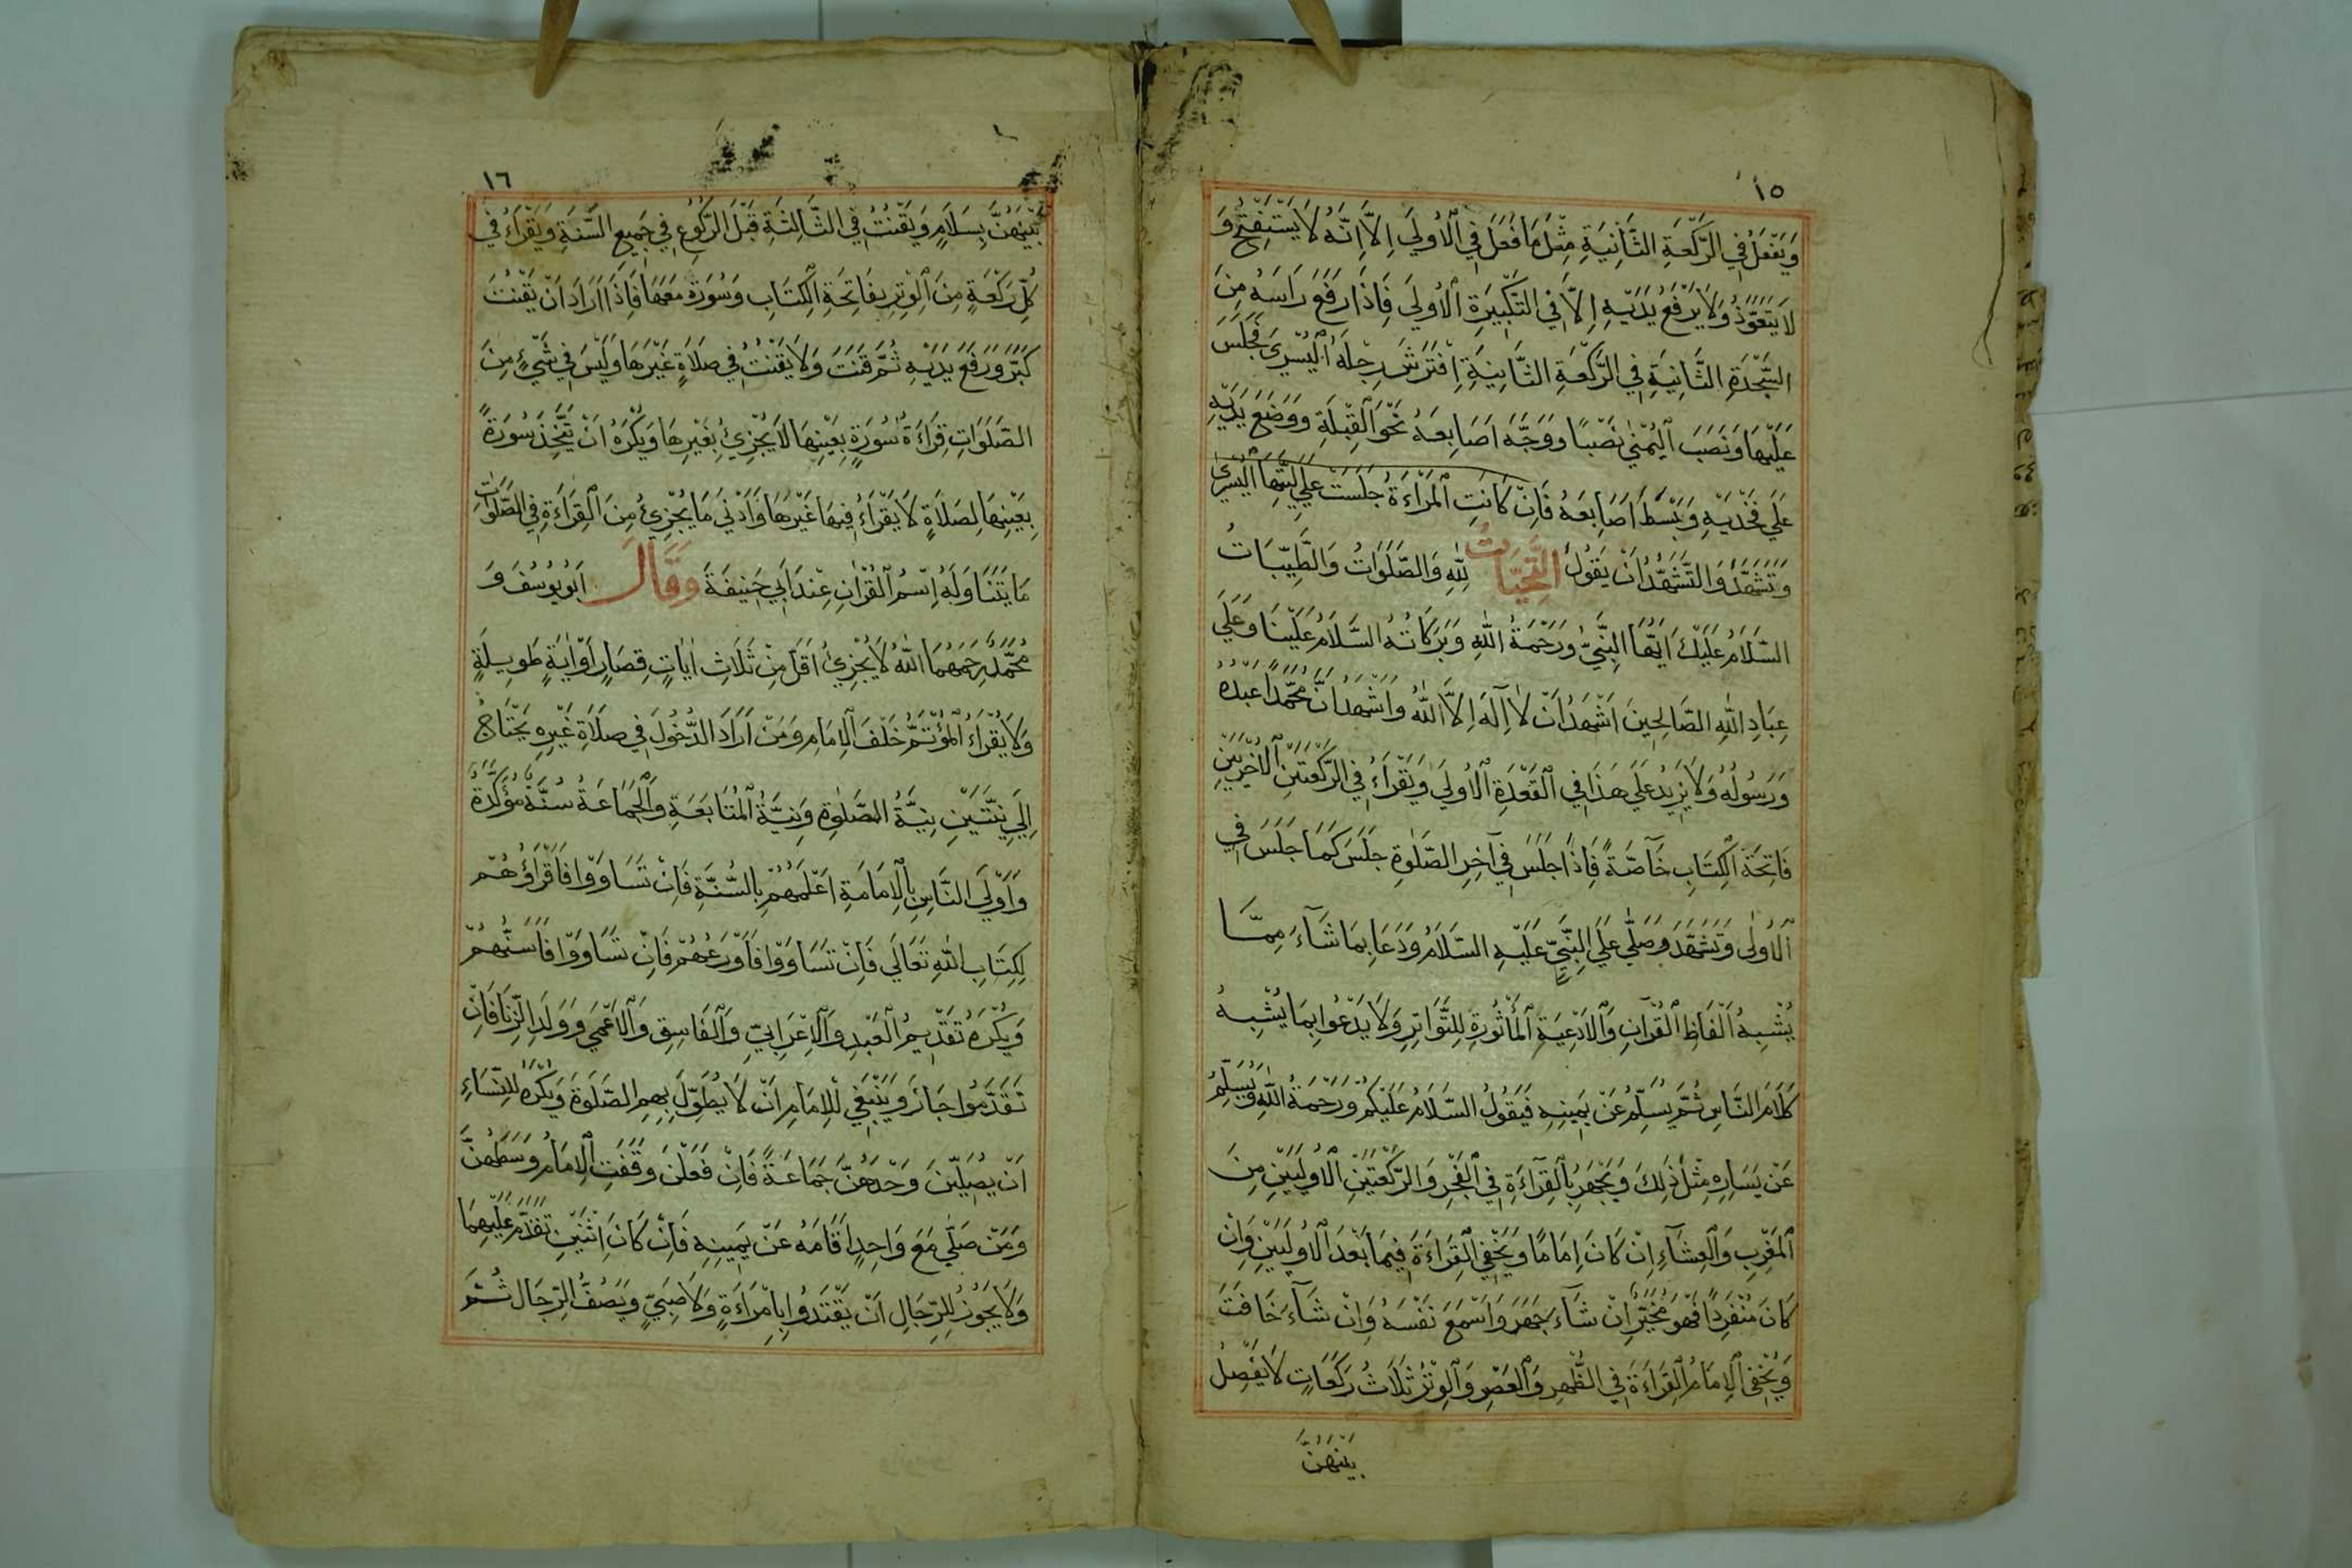 ١٥
وَيَفْعَلُ فِي الرَّكْعَةِ الثَّانِيَةِ مِثْلَ مَا فَعَلَ فِي الْاُولَي اِلَّا اِنَّهُ لَا يَسْتَفْتِحُ وَ
لَا يَتَعَوَّذُ وَلَا يَرْفَعُ يَدَيْهِ اِلَّا فِي التَّكْبِيرَةِ الْاُولَي فَاِذَا رَفَعَ رَاسَهُ مِنَ
السَّجْدَةِ الثَّانِيَةِ فِي الرَّكْعَةِ الثَّانِيَةِ اِفْتَرَشَ رِجْلَهُ الْيُسْرَي فَجَلَسَ
عَلَيْهَا وَنَصَبَ الْيُمْنٰي نَصْبًا وَوَجَّهَ اَصَابِعَهُ نَحْوَ الْقِبْلَةِ وَوَضَعَ يَدَيْهِ
عَلَي فَخْذَيْهِ وَبَسَطَ اَصَابِعَهُ فَاِنْ كَانَتِ الْمَرْاَءَةُ جَلَسَتْ عَلَي اَلْيَتِهَا الْيُسْرَي
وَتَشَهَّدَ وَالتَّشَهُّدُ اَنْ يَقُولَ اَلتَّحِيَّاتُ لِلّٰهِ وَالصَّلَوَاتُ وَالطَّيِّبَاتُ
السَّلَامُ عَلَيْكَ اَيُّهَا النَّبِيُّ وَرَحْمَةُ اللّٰهِ وَبَرَكَاتُهُ السَّلَامُ عَلَيْنَا وَعَلَي
عِبَادِ اللّٰهِ الصَّالِحِينَ اَشْهَدُ اَنْ لَا اِلٰهَ اِلَّا اللّٰهُ وَاَشْهَدُ اَنَّ مُحَمَّدًا عَبْدُهُ
وَرَسُولُهُ وَلَا يَزِيدُ عَلَي هَذَا فِي الْقَعْدَةِ الْاُولَي وَيَقْرَاءُ فِي الرَّكْعَتَيْنِ الْاُخْرَيَيْنِ
فَاتِحَةَ الْكِتَابِ خَآصَّةً فَاِذَا جَلَسَ فِي آخِرِ الصَّلٰوةِ جَلَسَ كَمَا جَلَسَ فِي
الْاُولٰي وَتَشَهَّدَ وَصَلّٰي عَلَي النَّبِيِّ عَلَيْهِ السَّلَامُ وَدَعَا بِمَا شَآءَ مِمَّا
يُشْبِهُ اَلْفَاظَ الْقُرْآنِ وَالْاَدْعِيَةِ الْمَأْثُورَةِ لِلتَّوَاتِرِ وَلَا يَدْعُوا بِمَا يُشْبِهُ
كَلَامَ النَّاسِ ثُمَّ يُسَلِّمُ عَنْ يَمِينِهِ فَيَقُولُ السَّلَامُ عَلَيْكُمْ وَرَحْمَةُ اللّٰهِ وَيُسَلِّمُ
عَنْ يَسَارِهِ مِثْلَ ذَلِكَ وَيَجْهَرُ بِالْقِرَآءَةِ فِي الْفَجْرِ وَالرَّكْعَتَيْنِ الْاُولَيَيْنِ مِنَ
الْمَغْرِبِ وَالْعِشَآءِ اِنْ كَانَ اِمَامًا وَيُخْفِي الْقِرَاءَةَ فِيمَا بَعْدَ الْاُولَيَيْنِ وَاِنْ
كَانَ مُنْفَرِدًا فَهُوَ مُخَيَّرٌ اِنْ شَآءَ جَهَرَ وَاَسْمَعَ نَفْسَهُ وَاِنْ شَآءَ خَافَتَ
وَيُخْفِي الْاِمَامُ الْقِرَاءَةَ فِي الظُّهْرِ وَالْعَصْرِ وَالْوِتْرُ ثَلَاثُ رَكَعَاتٍ لَا يَفْصِلُ
بَيْنَهُنَّ
١٦
بَيْنَهُنَّ بِسَلَامٍ وَيَقْنُتُ فِي الثَّالِثَةِ قَبْلَ الرُّكُوعِ فِي جَمِيعِ السَّنَةِ وَيَقْرَاءُ فِي
كُلِّ رَكْعَةٍ مِنَ الْوِتْرِ بِفَاتِحَةِ الْكِتَابِ وَسُورَةً مَعَهَا فَاِذَا اَرَادَ اَنْ يَقْنُتَ
كَبَّرَ وَرَفَعَ يَدَيْهِ ثُمَّ قَنَتَ وَلَا يَقْنُتُ فِي صَلَاةٍ غَيْرَهَا وَلَيْسَ فِي شَيْءٍ مِنَ
الصَّلَوَاتِ قِرَاءَةُ سُورَةٍ بِعَيْنِهَا لَا يُجْزِئُ بِغَيْرِهَا وَيُكْرَهُ اَنْ يَتَّخِذَ سُورَةً
بِعَيْنِهَا لِصَلَاةٍ لَا يَقْرَاءُ فِيهَا غَيْرَهَا وَاَدْنَي مَا يُجْزِئُ مِنَ الْقِرَاءَةِ فِي الصَّلَوَاتِ
مَا يَتَنَاوَلَهُ اِسْمُ الْقُرْاٰنِ عِنْدَ اَبِي حَنِيفَةَ وَقَالَ اَبُو يُوسُفَ وَ
مُحَمَّدٌ رَحِمَهُمَا اللّٰهُ لَا يُجْزِئُ اَقَلَّ مِنْ ثَلَاثِ اٰيَاتٍ قِصَارٍ اَوْ اٰيَةٍ طَوِيلَةٍ
وَلَا يَقْرَاءُ الْمُؤْتَمُّ خَلْفَ الْاِمَامِ وَمَنْ اَرَادَ الدُّخُولَ فِي صَلَاةِ غَيْرِهِ يَحْتَاجُ
اِلَي نِيَّتَيْنِ نِيَّةُ الصَّلٰوةِ وَنِيَّةُ الْمُتَابَعَةِ وَالْجَمَاعَةُ سُنَّةٌ مُؤَكَّدَةٌ
وَاَوْلَي النَّاسِ بِالْاِمَامَةِ اَعْلَمُهُمْ بِالسُّنَّةِ فَاِنْ تَسَاوَوْا فَاَقْرَاؤُهُمْ
لِكِتَابِ اللّٰهِ تَعَالَي فَاِنْ تَسَاوَوْا فَاَوْرَعُهُمْ فَاِنْ تَسَاوَوْا فَاَسَنُّهُمْ
وَيُكْرَهُ تَقْدِيمُ الْعَبْدِ وَالْاَعْرَابِيِّ وَالْفَاسِقِ وَالْاَعْمَي وَوَلَدِ الزِّنَا فَاِنْ
تَقَدَّمُوا جَازَ وَيَنْبَغِي لِلْاِمَامِ اَنْ لَا يُطَوِّلَ بِهِمِ الصَّلَوةَ وَيُكْرَهُ لِلنِّسَاءِ
اَنْ يُصَلِّيْنَ وَحْدَهُنَّ جَمَاعَةً فَاِنْ فَعَلْنَ وَقَفَتِ الْاِمَامُ وَسَطَهُنَّ
وَمَنْ صَلّٰي مَعَ وَاحِدٍ اَقَامَهُ عَنْ يَمِينِهِ فَاِنْ كَانَ اِثْنَيْنِ تَقَدَّمَ عَلَيْهِمَا
وَلَا يَجُوزُ لِلرِّجَالِ اَنْ يَقْتَدُوا بِامْرَاَءَةٍ وَلَا صَبِيٍّ وَيَصُفُّ الرِّجَالُ ثُمَّ